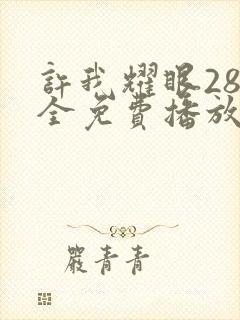 許我耀眼28
全免費播放
嚴青青